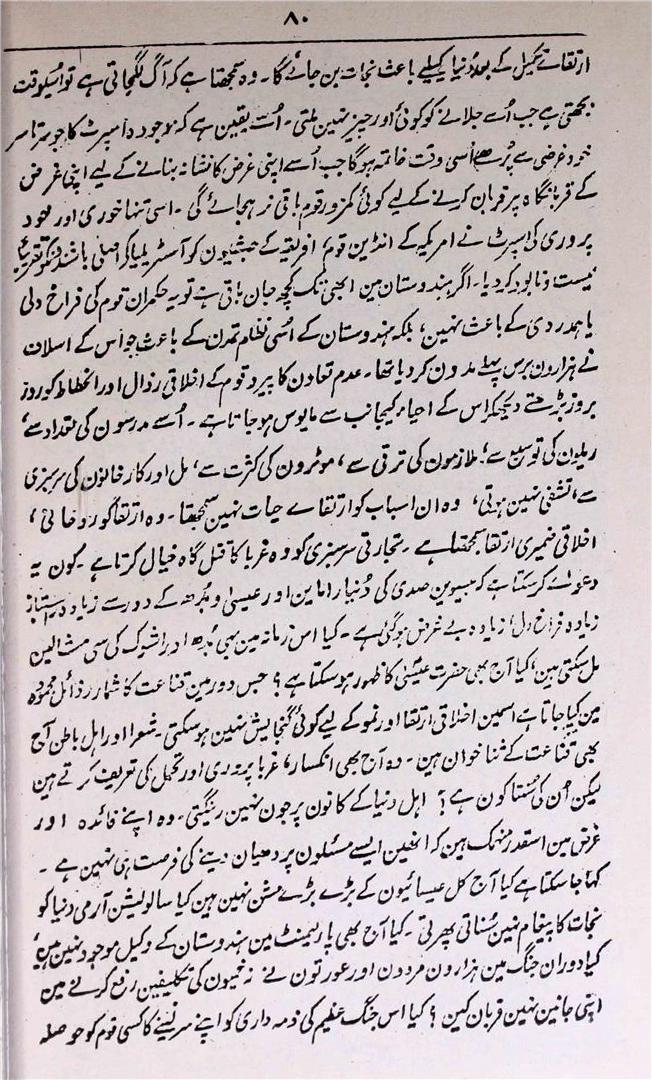 ۸۰
ارتقائے تکمیل کے بعد دُنیا کیلیے باعث نجات بن جائے گا۔ وہ سمجھتا ہے کہ آگ لگجاتی ہے تو اسیوقت
بجھتی ہے جب اُسے جلانے کو کوئی اور چیز نہین ملتی۔ اُسے یقین ہے کہ موجودہ اسپرٹ کا جو سرتاسر
خود غرضی سے پُر ہے اُسی وقت خاتمہ ہوگا جب اُسے اپنی غرض کا نشانہ بنانے کے لیے اپنی غرض
کے قربانگاہ پر قربان کرنے کے لیے کوئی کمزور قوم باقی نرہجائے گی۔ اسی تنہا خوری اور خود
پروری کی اسپرٹ نے امریکہ کے انڈین قوم، افریقہ کے حبشیون کو آسٹریلیا کے اصلی باشندونکو تقریباً
نیست و نابود کردیا۔ اگر ہندوستان مین ابھی تک کچھ جان باقی ہے تو یہ حکمران قوم کی فراخ دلی
یا ہمدردی کے باعث نہین، بلکہ ہندوستان کے اُسی نظام تمدن کے باعث جو اُس کے اسلاف
نے ہزارون برس پہلے مدون کردیا تھا۔ عدم تعاون کا پیرو قوم کے اخلاقی زوال اور انحطاط کو روز
بروز بڑھتے دیکھکر اس کے احیاء کیجانب سے مایوس ہوجاتا ہے۔ اُسے مدرسون کی تعداد سے،
ریلون کی توسیع سے، ملازمون کی ترقی سے، موٹرون کی کثرت سے، مل اور کارخانون کی سرسبزی
سے، تشفی نہین ہوتی، وہ ان اسباب کو ارتقائے حیات نہین سمجھتا۔ وہ ارتقا کو روحانی،
اخلاقی ضمیری ارتقا سمجھتا ہے۔ تجارتی سرسبزی کو وہ غربا کا قتل گاہ خیال کرتا ہے۔ کون یہ
دعوے کرسکتا ہے کہ بیسوین صدی کی دُنیا راماین اور عیسیٰ و بُدھ کے دور سے زیادہ راستباز
زیادہ فراخ دل، زیادہ بے غرض ہوگئی ہے۔ کیا اس زمانہ مین بھی بُدھ اور اشوک کی سی مثالین
مل سکتی ہین، کیا آج بھی حضرت عیسٰی کا ظہور ہوسکتا ہے؟ جس دور مین قناعت کا شمار رذائل
مین کیا جاتا ہے اسمین اخلاقی ارتقا اور نمو کے لیے کوئی گنجایش نہین ہوسکتی۔ شعرا اور اہل باطن آج
بھی قناعت کے ثنا خوان ہین۔ وہ آج بھی انکسار، غربا پروری اور تحمل کی تعریف کرتے ہین
لیکن اُن کی سُنتا کون ہے؟ اہل دنیا کے کانون پر جون نہین رینگتی۔ وہ اپنے فائدہ اور
غرض مین اسقدر منہمک ہین کہ انھین ایسے مسئلون پر دھیان دینے کی فرصت ہی نہین ہے۔
کہا جاسکتا ہے کیا آج کل عیسائیون کے بڑے بڑے مشن نہین ہین کیا سالویشن آرمی دنیا کو
نجات کا پیغام نہین سُناتی پھرتی۔ کیا آج بھی پارلیمنٹ مین ہندوستان کے وکیل موجود نہین ہین،
کیا دوران جنگ مین ہزارون مردون اور عورتون نے زخمیون کی تکلیفین رفع کرنے مین
اپنی جانین نہین قربان کین؟ کیا اس جنگ عظیم کی ذمہ داری کو اپنے سر لینے کا کسی قوم کو حوصلہ